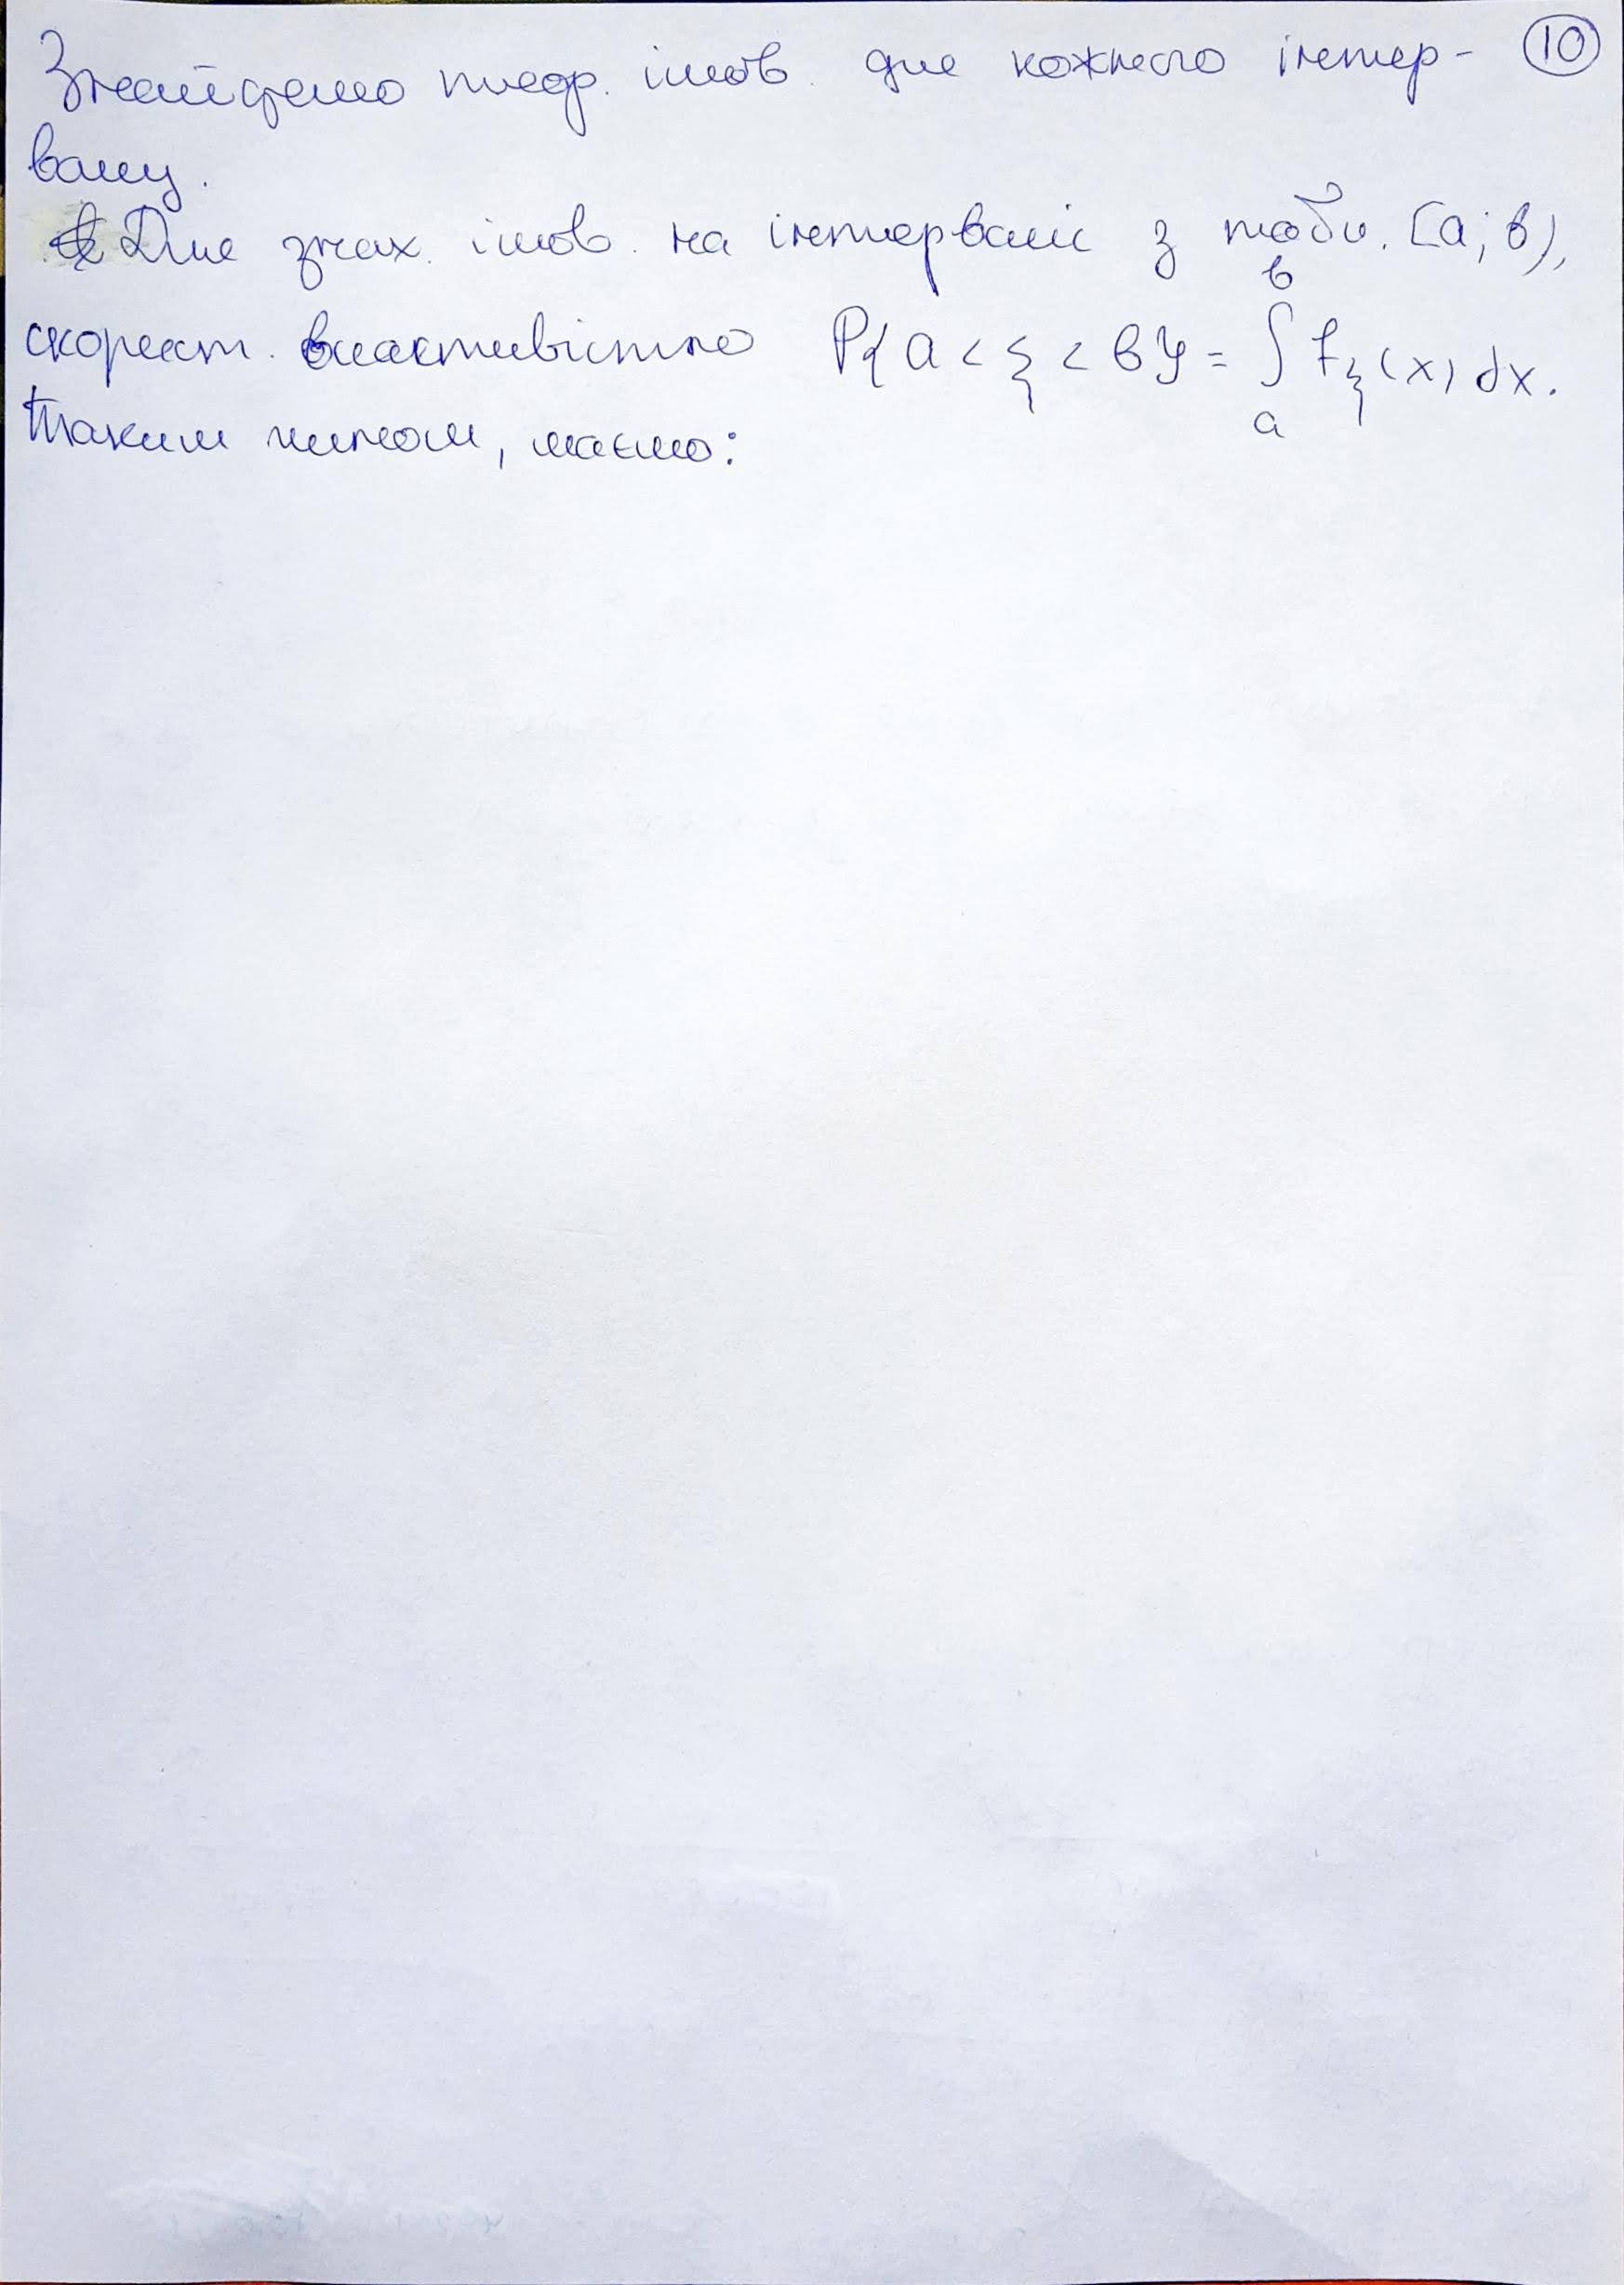 Знайдемо теор. імов. для кожного інтер- ⑩
валу.
Для знах. імов. на інтервалі з табл. [a; b),
скорист. властивістю P{a < ξ < b} = ∫ₐᵇ f_ξ(x) dx.
Таким чином, маємо: